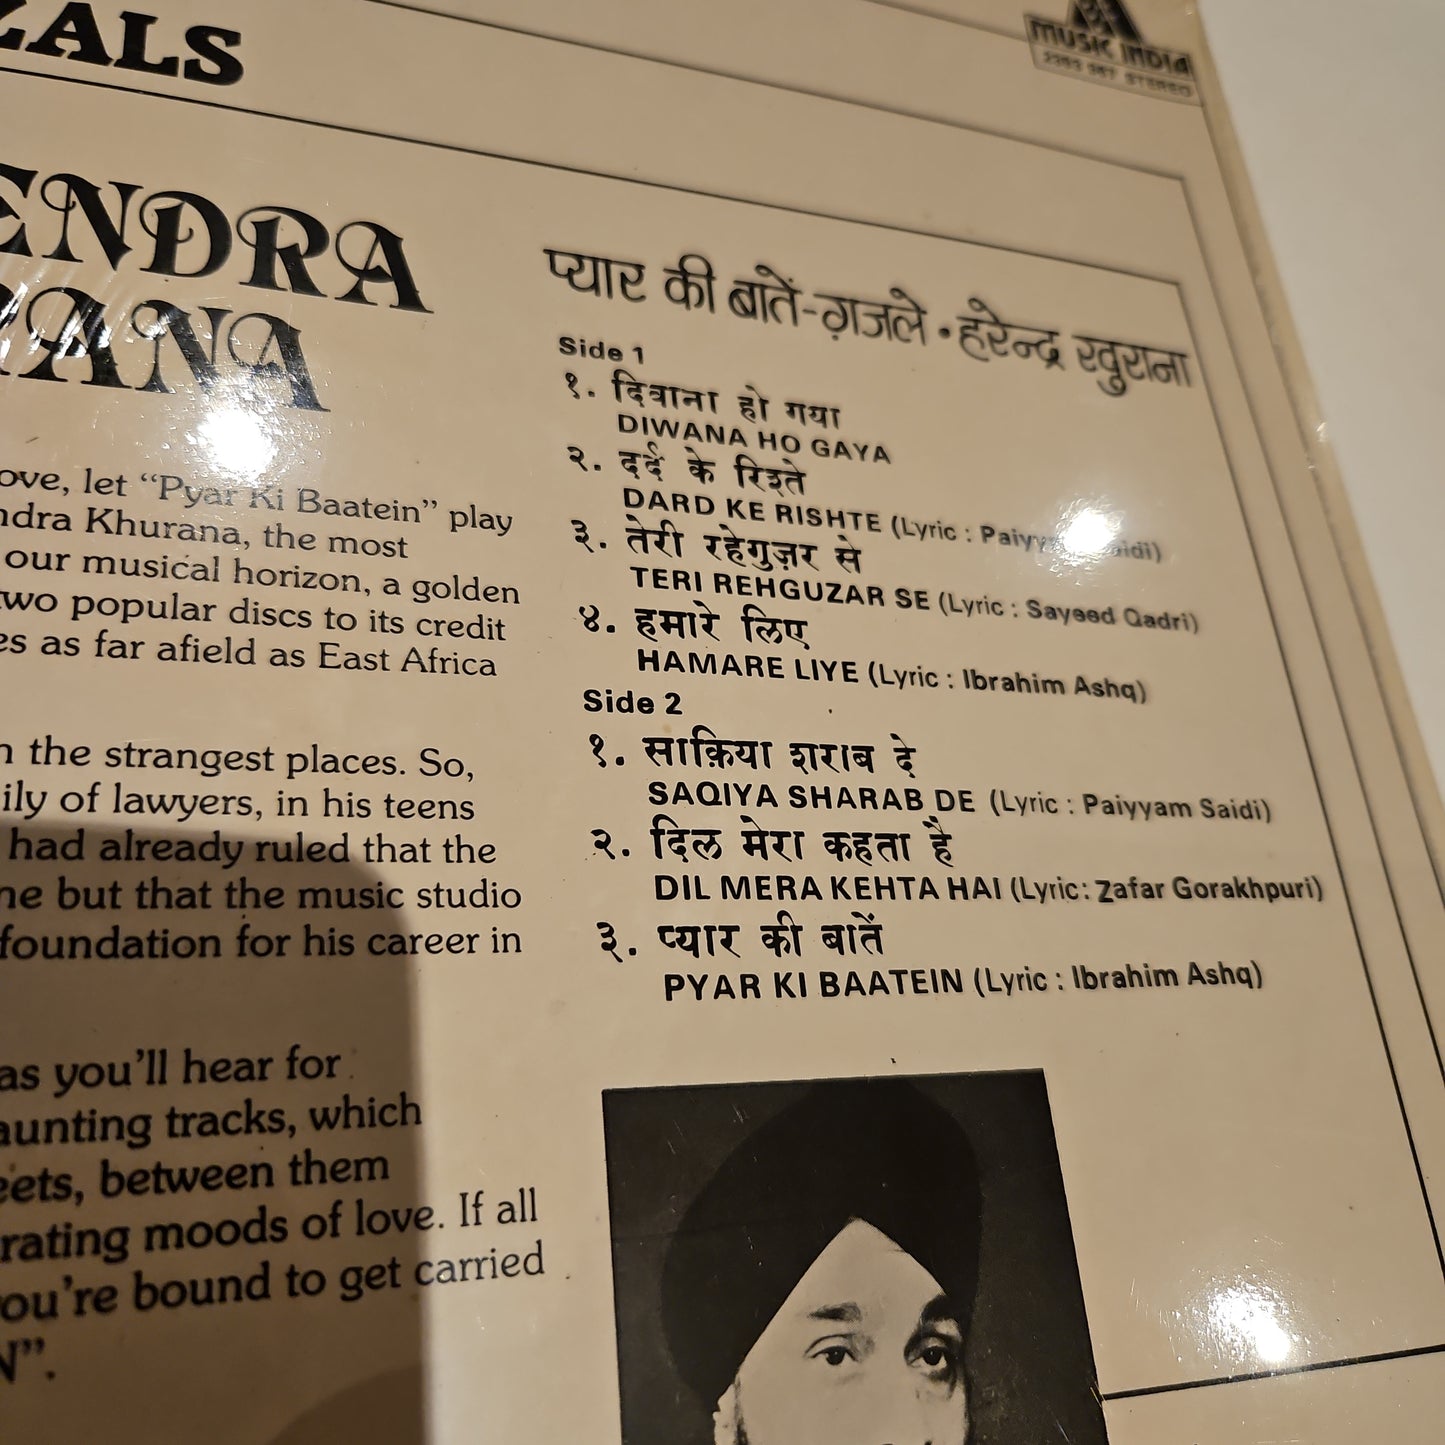 ZALS
MUSIC INDIA
2393 967 STEREO
ENDRA
RANA
प्यार की बातें-ग़जलें • हरेन्द्र खुराना
Side 1
१. दिवाना हो गया
DIWANA HO GAYA
२. दर्द के रिश्ते
DARD KE RISHTE (Lyric : Paiyyam Saidi)
३. तेरी रहेगुज़र से
TERI REHGUZAR SE (Lyric : Sayeed Qadri)
४. हमारे लिए
HAMARE LIYE (Lyric : Ibrahim Ashq)
Side 2
१. साक़िया शराब दे
SAQIYA SHARAB DE (Lyric : Paiyyam Saidi)
२. दिल मेरा कहता है
DIL MERA KEHTA HAI (Lyric: Zafar Gorakhpuri)
३. प्यार की बातें
PYAR KI BAATEIN (Lyric : Ibrahim Ashq)
ove, let “Pyar Ki Baatein” play
ndra Khurana, the most
our musical horizon, a golden
two popular discs to its credit
es as far afield as East Africa
n the strangest places. So,
ily of lawyers, in his teens
had already ruled that the
ne but that the music studio
foundation for his career in
as you’ll hear for
aunting tracks, which
eets, between them
rating moods of love. If all
you’re bound to get carried
N”.